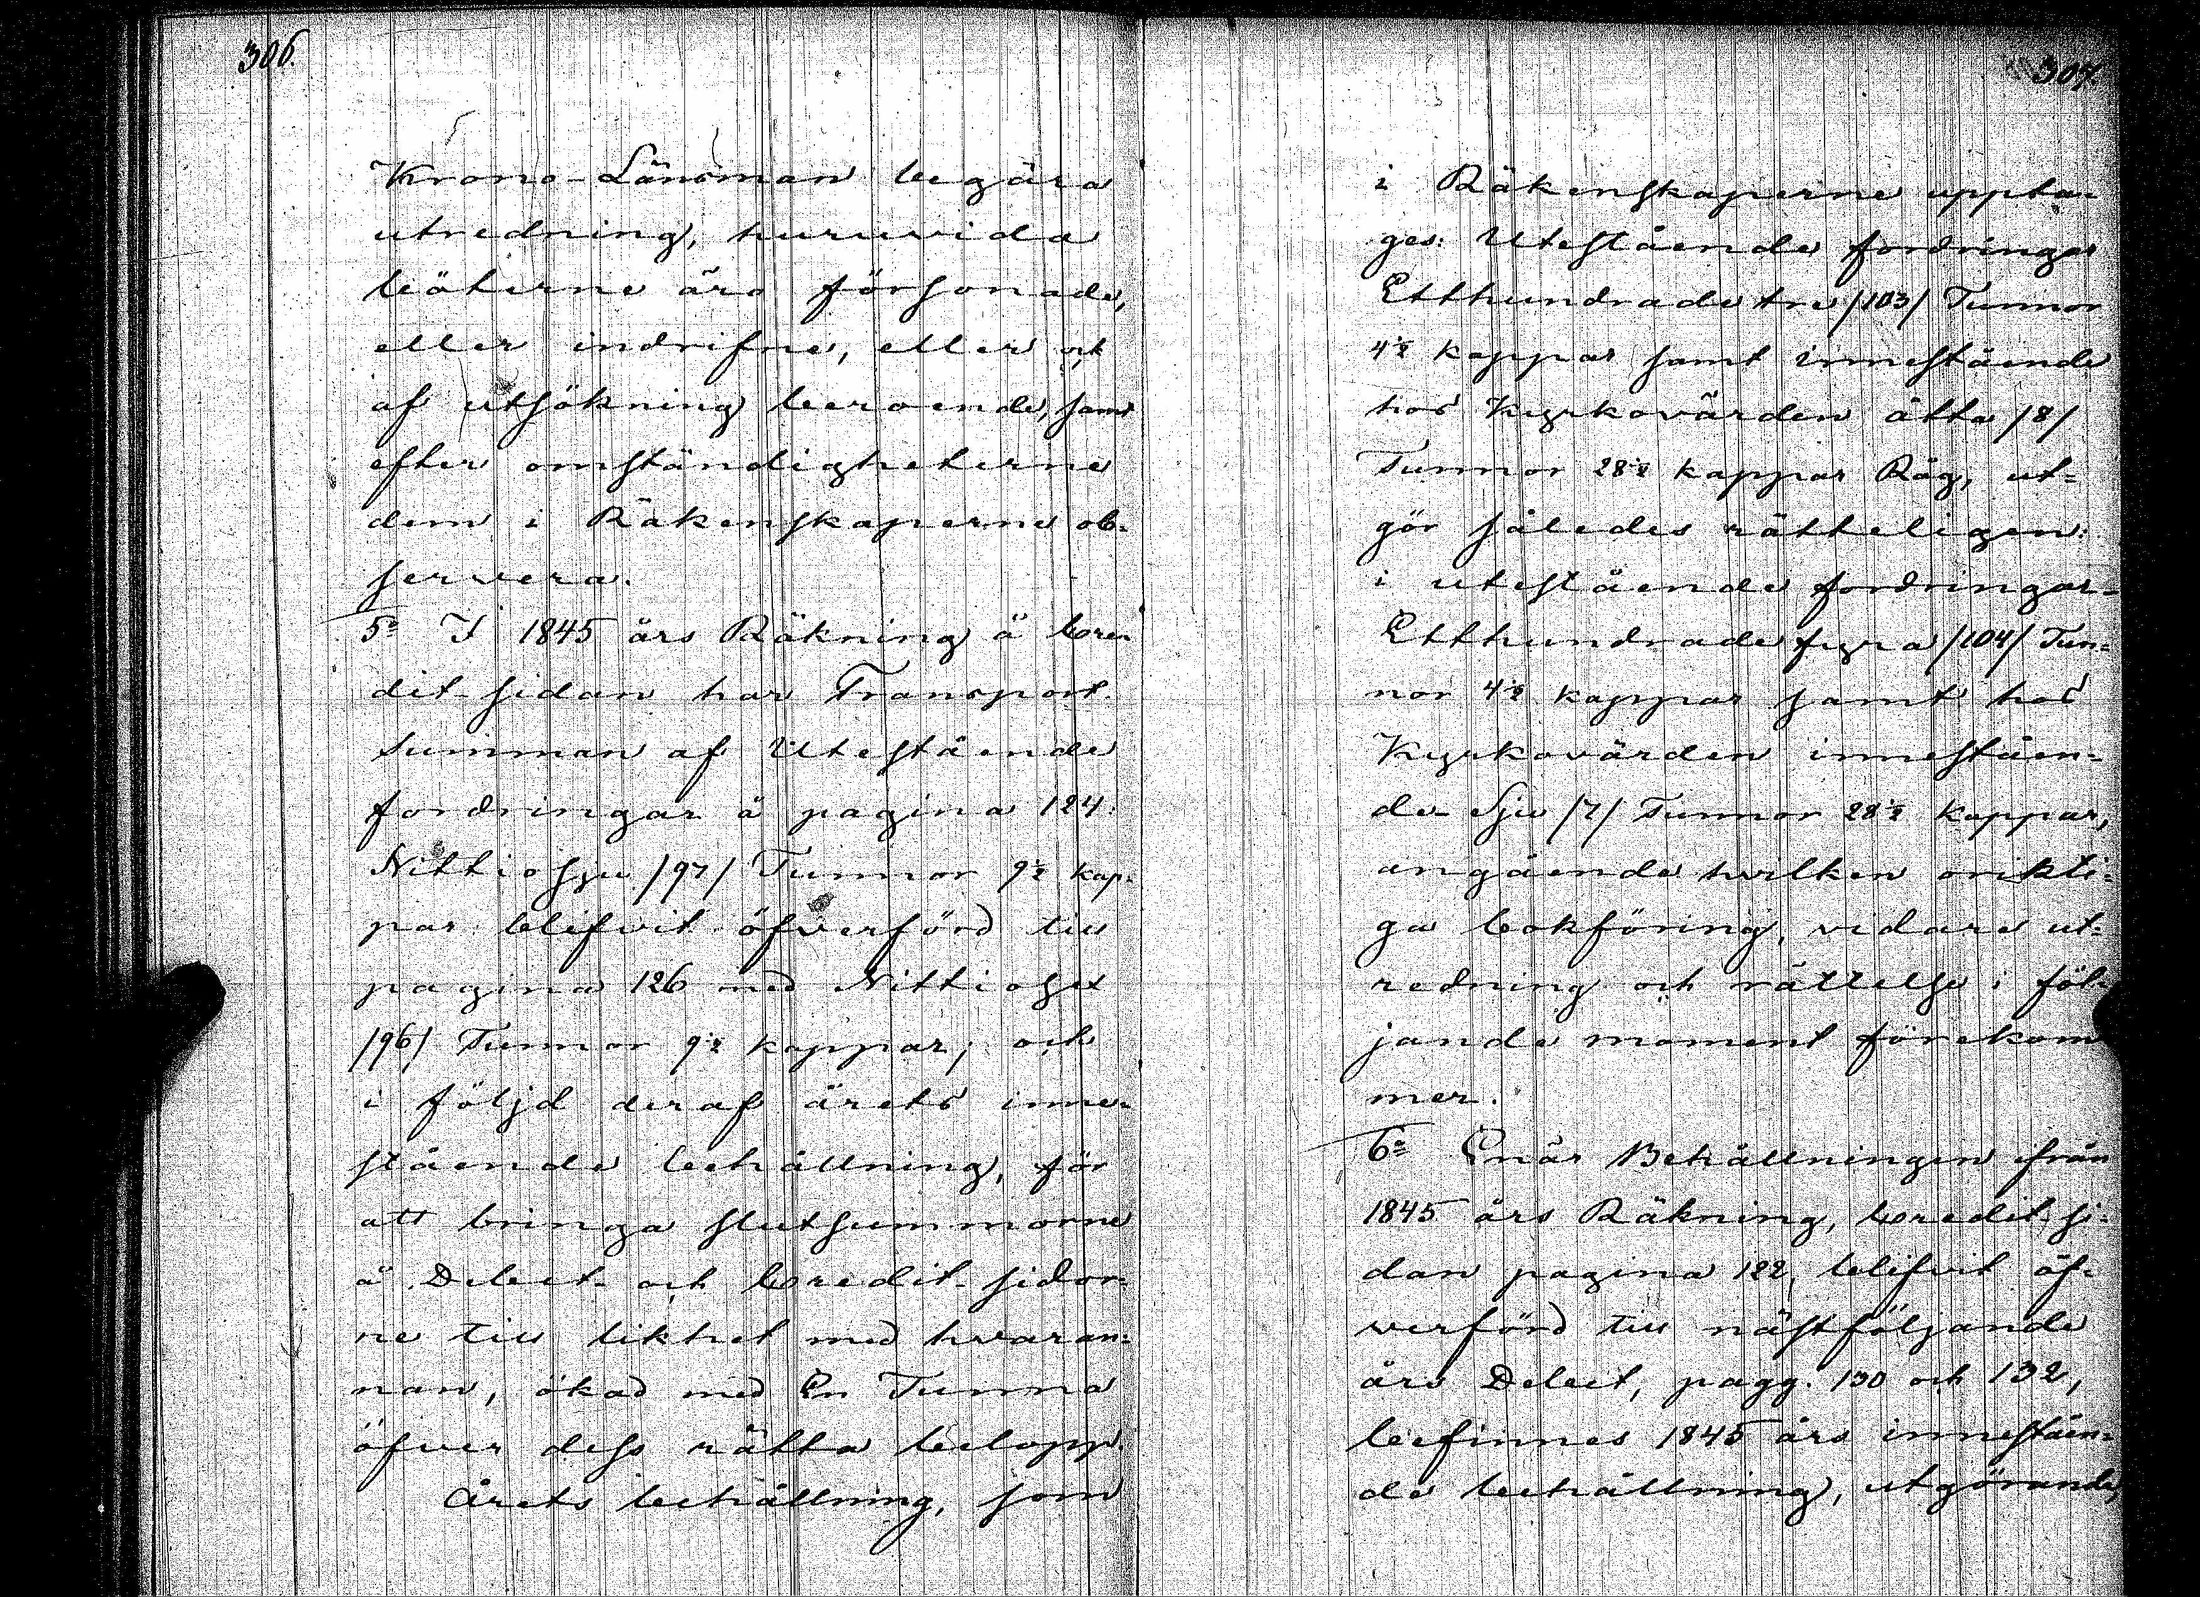 306.
Krono-Länsman begära
utredning, huruvida
böterne äro försonade,
eller indrifne, eller och
af utsökning beroende, samt
efter omständigheterne
dem i Räkenskaperne ob-
servera.
5º I 1845 års Räkning å Cre-
dit-sidan har Transport-
summan af Utestående
fordringar å pagina 124:
Nittiosju /97/ Tunnor 9½ kap-
par blifvit öfverförd till
pagina 126 med Nittiosex
/96/ Tunnor 9½ kappar; och
i följd deraf årets inne-
stående behållning, för
att bringa slutsummorne
å Debet- och Credit-sidor-
ne till likhet med hvaran-
nan, ökad med En Tunna
öfver dess rätta belopp.
Årets behållning, som
307.
i Räkenskaperne uppta-
ges: Utestående fordringar
Etthundrade tre /103/ Tunnor
4½ kappar samt innestående
hos Kyrkovärden åtta /8/
Tunnor 28½ kappar Råg, ut-
gör således rätteligen:
i utestående fordringar-
Etthundrade fyra /104/ Tun-
nor 4½ kappar samt hos
Kyrkovärden innestäen-
de Sju /7/ Tunnor 28½ kappar,
angående hvilken orikti-
ga bokföring, vidare ut-
redning och rättelse i föl-
jande moment förekom
mer.
6º Enär Behållningen ifrån
1845 års Räkning, Credit-si-
dan pagina 122, blifvit öf-
verförd till nästföljande
års Debet, pagg. 130 och 132,
befinnes 1845 års inneståen-
de behållning, utgörande,